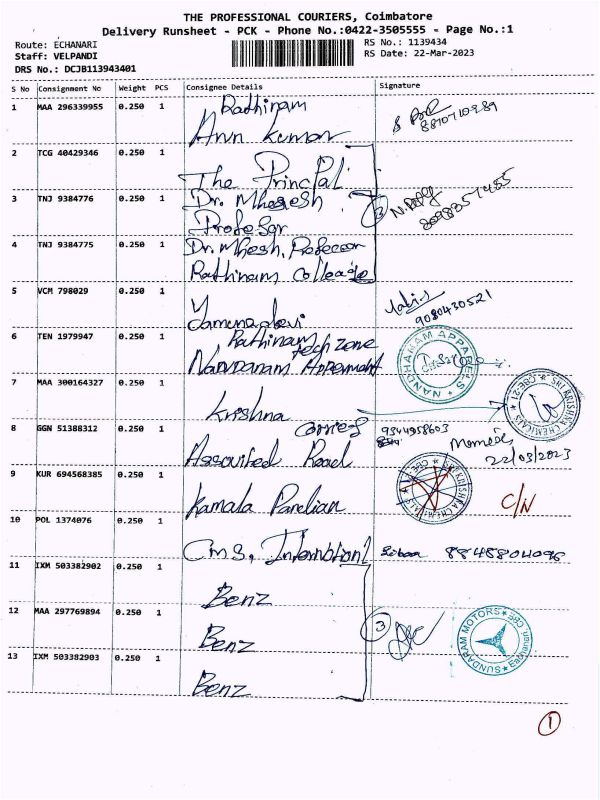 THE PROFESSIONAL COURIERS, Coimbatore
Delivery Runsheet - PCK - Phone No.:0422-3505555 - Page No.:1
Route: ECHANARI
Staff: VELPANDI
DRS No.: DCJB113943401
RS No.: 1139434
RS Date: 22-Mar-2023
S No Consignment No Weight PCS Consignee Details Signature
1 MAA 296339955 0.250 1 Rathinam
Arun Kumar
8870710989
2 TCG 40429346 0.250 1
The Principal
3 TNJ 9384776 0.250 1 Dr. Mhegesh
Profesor
3
4 TNJ 9384775 0.250 1 Dr. Mhesh, Profecor
Rathinam College
5 VCM 798029 0.250 1
Yamunadevi
9080430521
6 TEN 1979947 0.250 1 Rathinam
tech zone
NANDHANAM APPARELS
7 MAA 300164327 0.250 1
Krishna
SRI KRISHNA CHEMICALS
8 GGN 51388312 0.250 1
Road
9344958603
22/03/2023
9 KUR 694568385 0.250 1
Kamala Pandian
SRI KRISHNA CHEMICALS
C/N
10 POL 1374076 0.250 1
Cms, International
11 IXM 503382902 0.250 1
Benz
12 MAA 297769894 0.250 1
Benz
3
SUNDARAM MOTORS
13 IXM 503382903 0.250 1
Benz
1